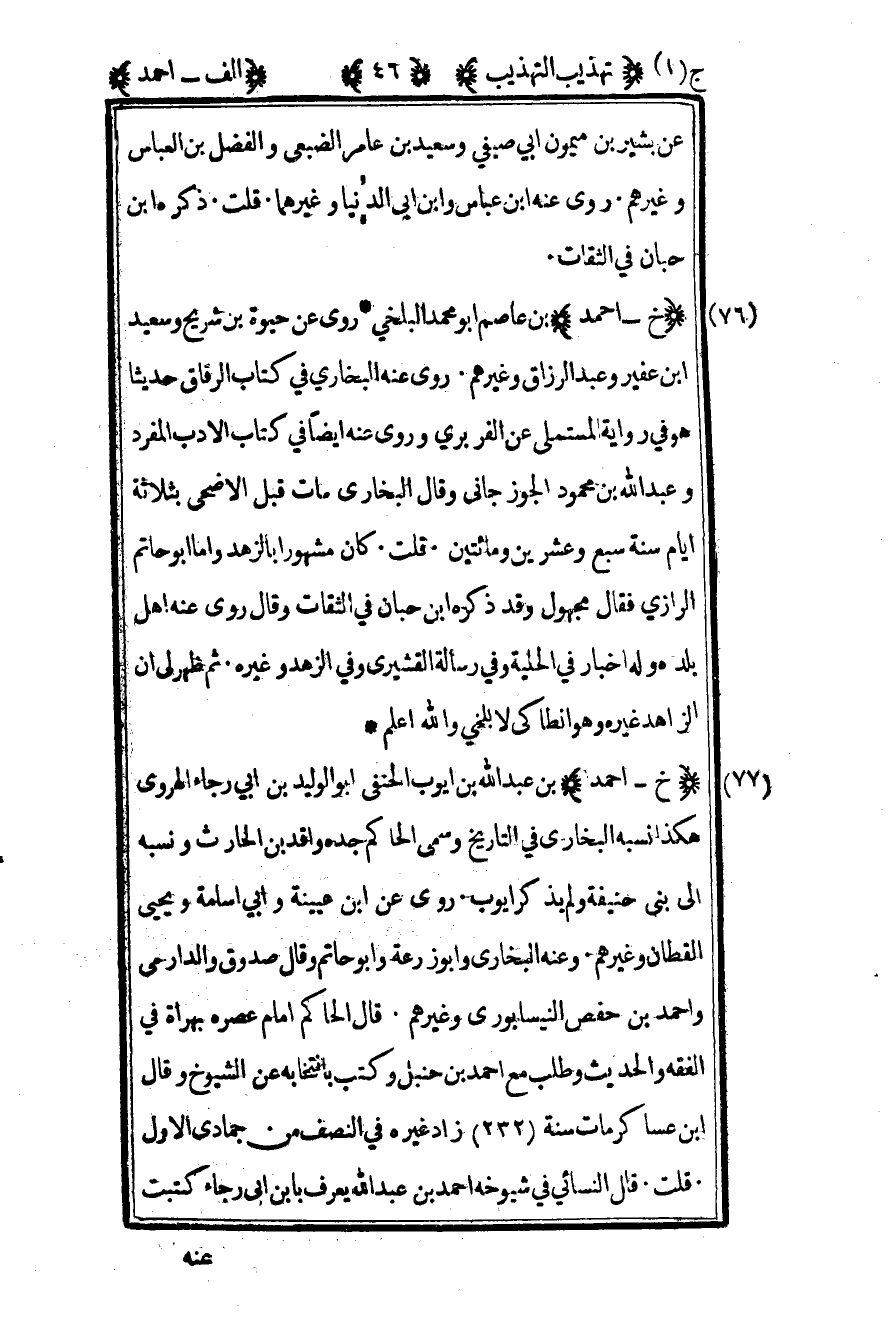 ج (١) ﴿ تهذيب التهذيب ﴾ ﴿ ٤٦ ﴾ ﴿ الف ــ احمد ﴾
عن بشير بن ميمون ابي صيفي وسعيد بن عامر الضبعى و الفضل بن العباس
و غيرهم ٠ روى عنه ابن عباس وابن ابى الدنيا و غيرهما ٠ قلت ٠ ذكره ابن
حبان في الثقات ٠
(٧٦) ﴿ خ ــ احمد ﴾ بن عاصم ابو محمد البلخي * روى عن حيوة بن شريح وسعيد
ابن عفير وعبد الرزاق وغيرهم ٠ روى عنه البخاري في كتاب الرقاق حديثا
هو في رواية المستملى عن الفربري وروى عنه ايضاً في كتاب الادب المفرد
و عبد الله بن محمود الجوزجانى وقال البخارى مات قبل الاضحى بثلاثة
ايام سنة سبع وعشرين ومائتين ٠ قلت ٠ كان مشهورا بالزهد واما ابو حاتم
الرازي فقال مجهول وقد ذكره ابن حبان في الثقات وقال روى عنه اهل
بلده وله اخبار في الحلية وفي رسالة القشيرى وفي الزهد و غيره ٠ ثم ظهر لى ان
الزاهد غيره وهو انطاكى لا بلخي والله اعلم *
(٧٧) ﴿ خ ــ احمد ﴾ بن عبد الله بن ايوب الحنفى ابو الوليد بن ابي رجاء الهروى
هكذا نسبه البخارى في التاريخ وسمى الحاكم جده واقد بن الحارث و نسبه
الى بنى حنيفة ولم يذكر ايوب ٠ روى عن ابن عيينة و ابي اسامة و يحيى
القطان وغيرهم ٠ وعنه البخارى وابو زرعة وابو حاتم وقال صدوق والدارمى
واحمد بن حفص النيسابورى وغيرهم ٠ قال الحاكم امام عصره بهراة في
الفقه والحديث وطلب مع احمد بن حنبل وكتب بانتخابه عن الشيوخ وقال
ابن عساكر مات سنة (٢٣٢) زاد غيره في النصف من جمادى الاول
٠ قلت ٠ قال النسائي في شيوخه احمد بن عبد الله يعرف بابن ابى رجاء كتبت
عنه